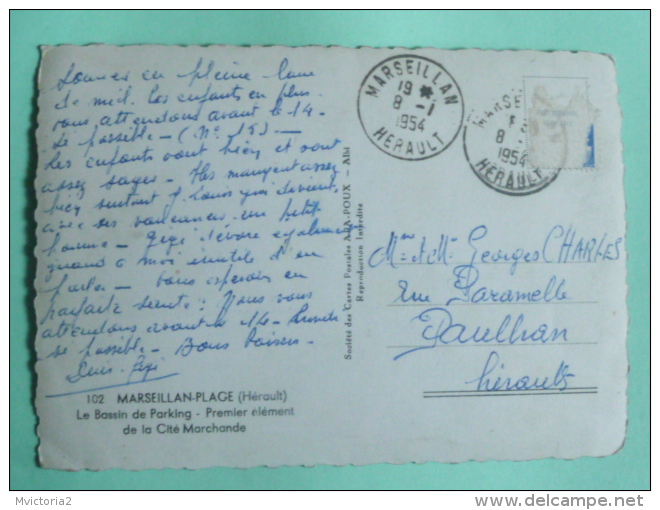 Sommes en pleine lune
de miel. Les enfants en plus
vous attendons avant le 14-
Si possible - (N° 15) -
Les enfants vont bien et sont
assez sages - Ils mangent assez
bien surtout J. Louis qui devient
avec ses vacances un petit
homme - Gigi dévore également
quand à moi inutile d'en
parler - vous espérons en
parfaite santé: Nous vous
attendons avant le 14-
si possible - Bons baisers -
Gigi
102 MARSEILLAN-PLAGE (Hérault)
Le Bassin de Parking - Premier élément
de la Cité Marchande
Société des Cartes Postales APA-POUX - Albi
Reproduction Interdite
MARSEILLAN
19 *
8 -1
1954
HERAULT
MARSE
8
1954
HERAULT
Mme et Mr Georges CHARLES
rue Paramelle
Paulhan
hérault
Mvictoria2
delcampe.net